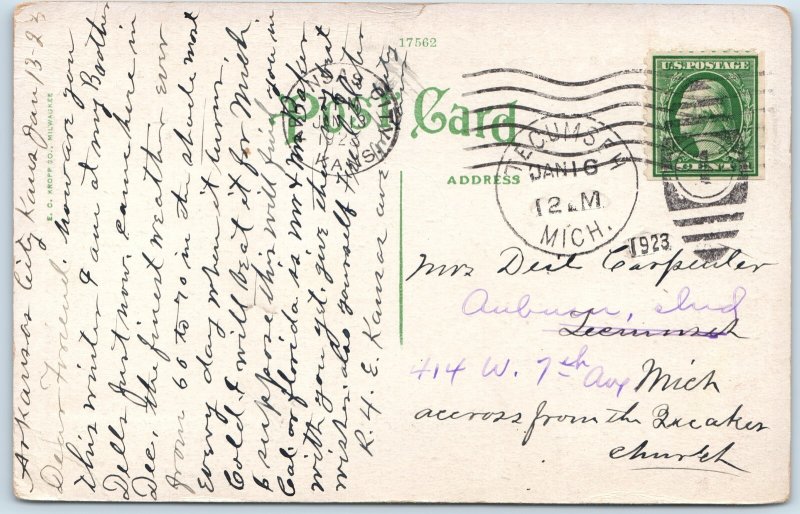 17562
Post Card
ADDRESS
E. C. KROPP CO., MILWAUKEE
U.S. POSTAGE
TECUMSEH
JAN 16
12 M
MICH.
1923
JAN
KANS
Arkansas City Kans Jan 13-23
Dear Friend. how are you
this winter I am at my Brother
Dells just now. came here in
Dec, the finest weather ever
from 60 to 70 in the shade most
every day when it turns
Cold I will beat it for Mich.
I suppose this will find you in
Cal or florida is Mr & Mrs
with you yet give them my best
wishes also yourself
R. H. E. Kansas ave
Mrs Deit Carpenter
Auburn, Ind
Tecumseh
414 W. 7th Ave Mich
accross from the Quaker
church